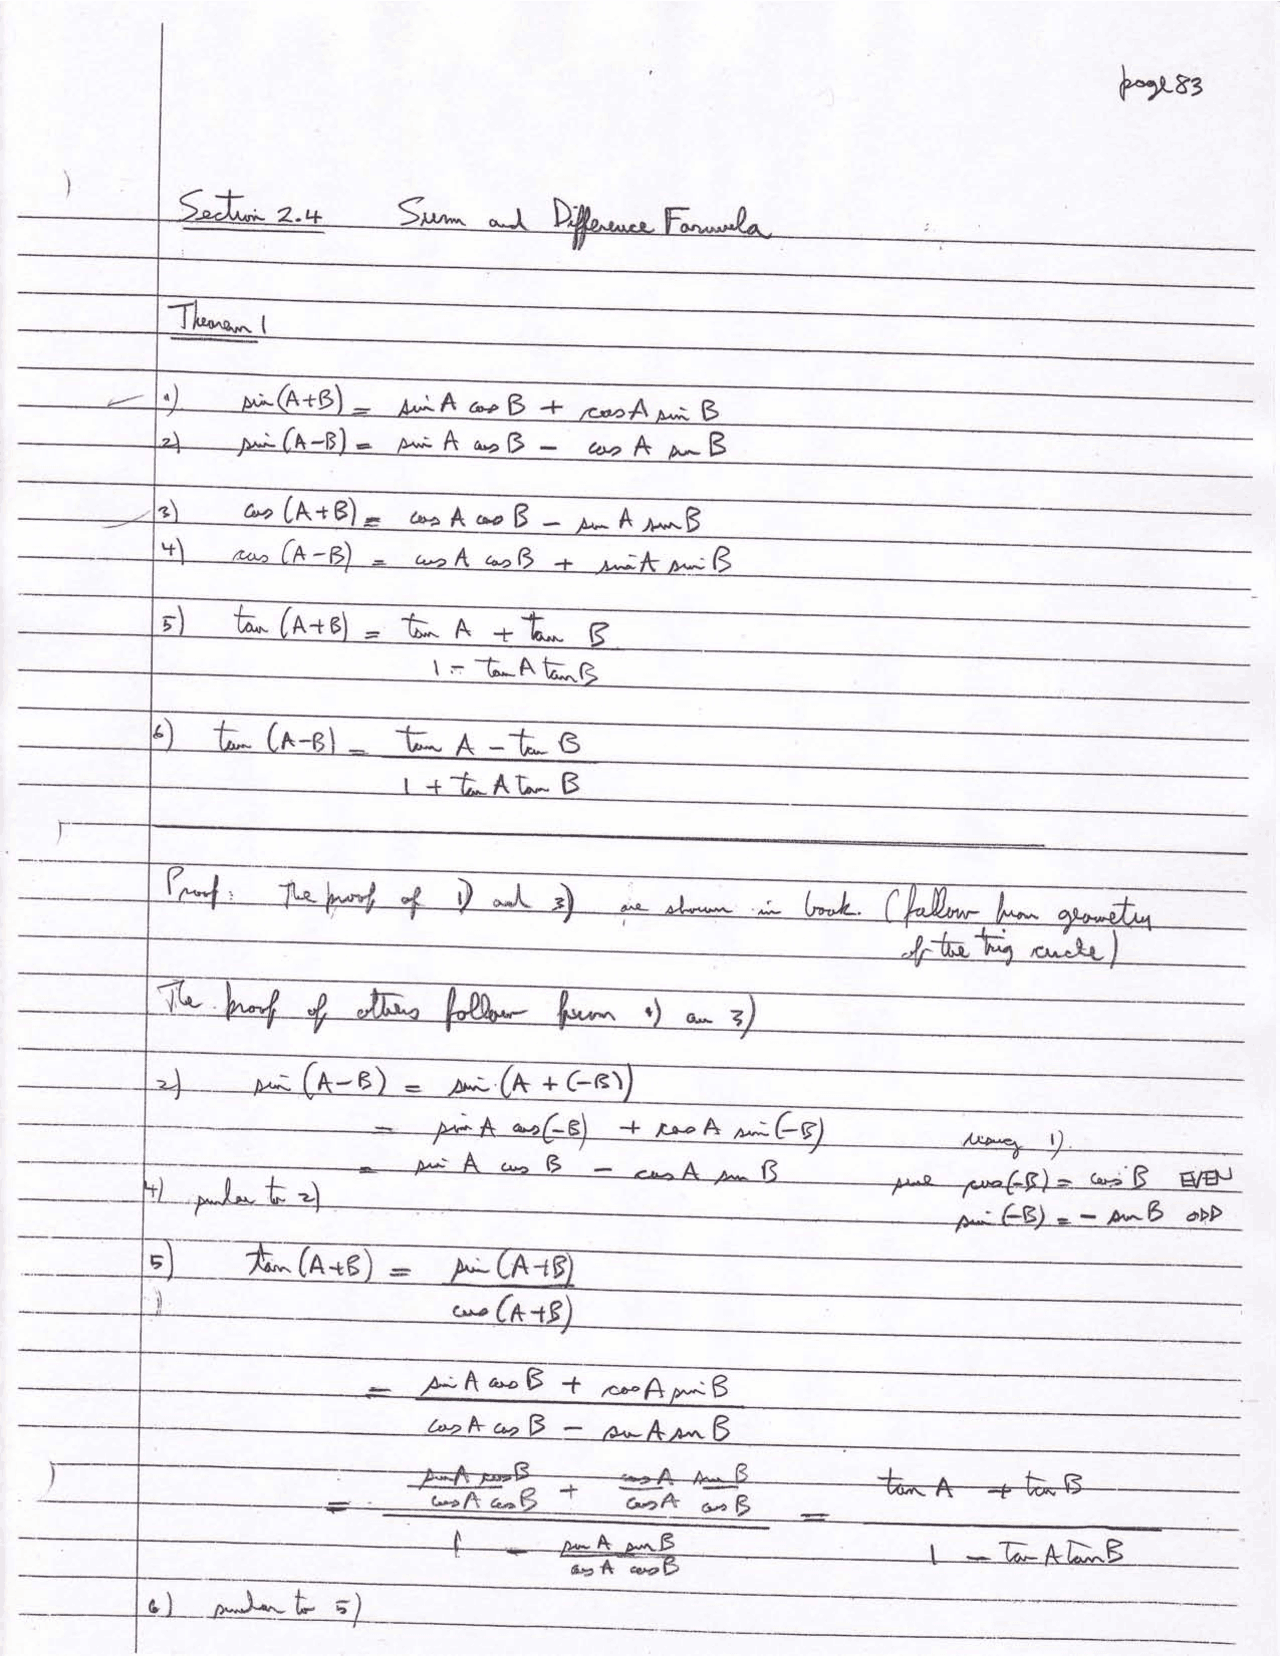 page 83
Section 2.4 Sum and Difference Formula
Theorem 1
1) sin(A+B) = sin A cos B + cos A sin B
2) sin(A-B) = sin A cos B - cos A sin B
3) cos(A+B) = cos A cos B - sin A sin B
4) cos(A-B) = cos A cos B + sin A sin B
5) tan(A+B) = tan A + tan B
1 - tan A tan B
6) tan(A-B) = tan A - tan B
1 + tan A tan B
Proof: The proof of 1) and 3) are shown in book. (follow from geometry
of the trig circle)
The proof of others follow from 1) an 3)
2) sin(A-B) = sin(A+(-B))
= sin A cos(-B) + cos A sin(-B) using 1)
= sin A cos B - cos A sin B since cos(-B) = cos B EVEN
4) similar to 2) sin(-B) = - sin B ODD
5) tan(A+B) = sin(A+B)
cos(A+B)
= sin A cos B + cos A sin B
cos A cos B - sin A sin B
sin A cos B + cos A sin B
= cos A cos B cos A cos B = tan A + tan B
1 - sin A sin B 1 - tan A tan B
cos A cos B
6) similar to 5)